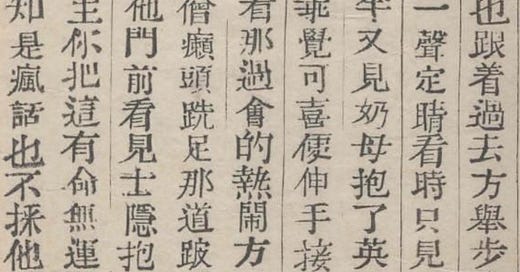 也跟着過去方舉步
一聲定睛看時只見
午又見奶母抱了英
乖覺可喜便伸手接
看那過會的熱鬧方
僧癩頭跣足那道跛
他門前看見士隱抱
主你把這有命無運
知是瘋話也不採他